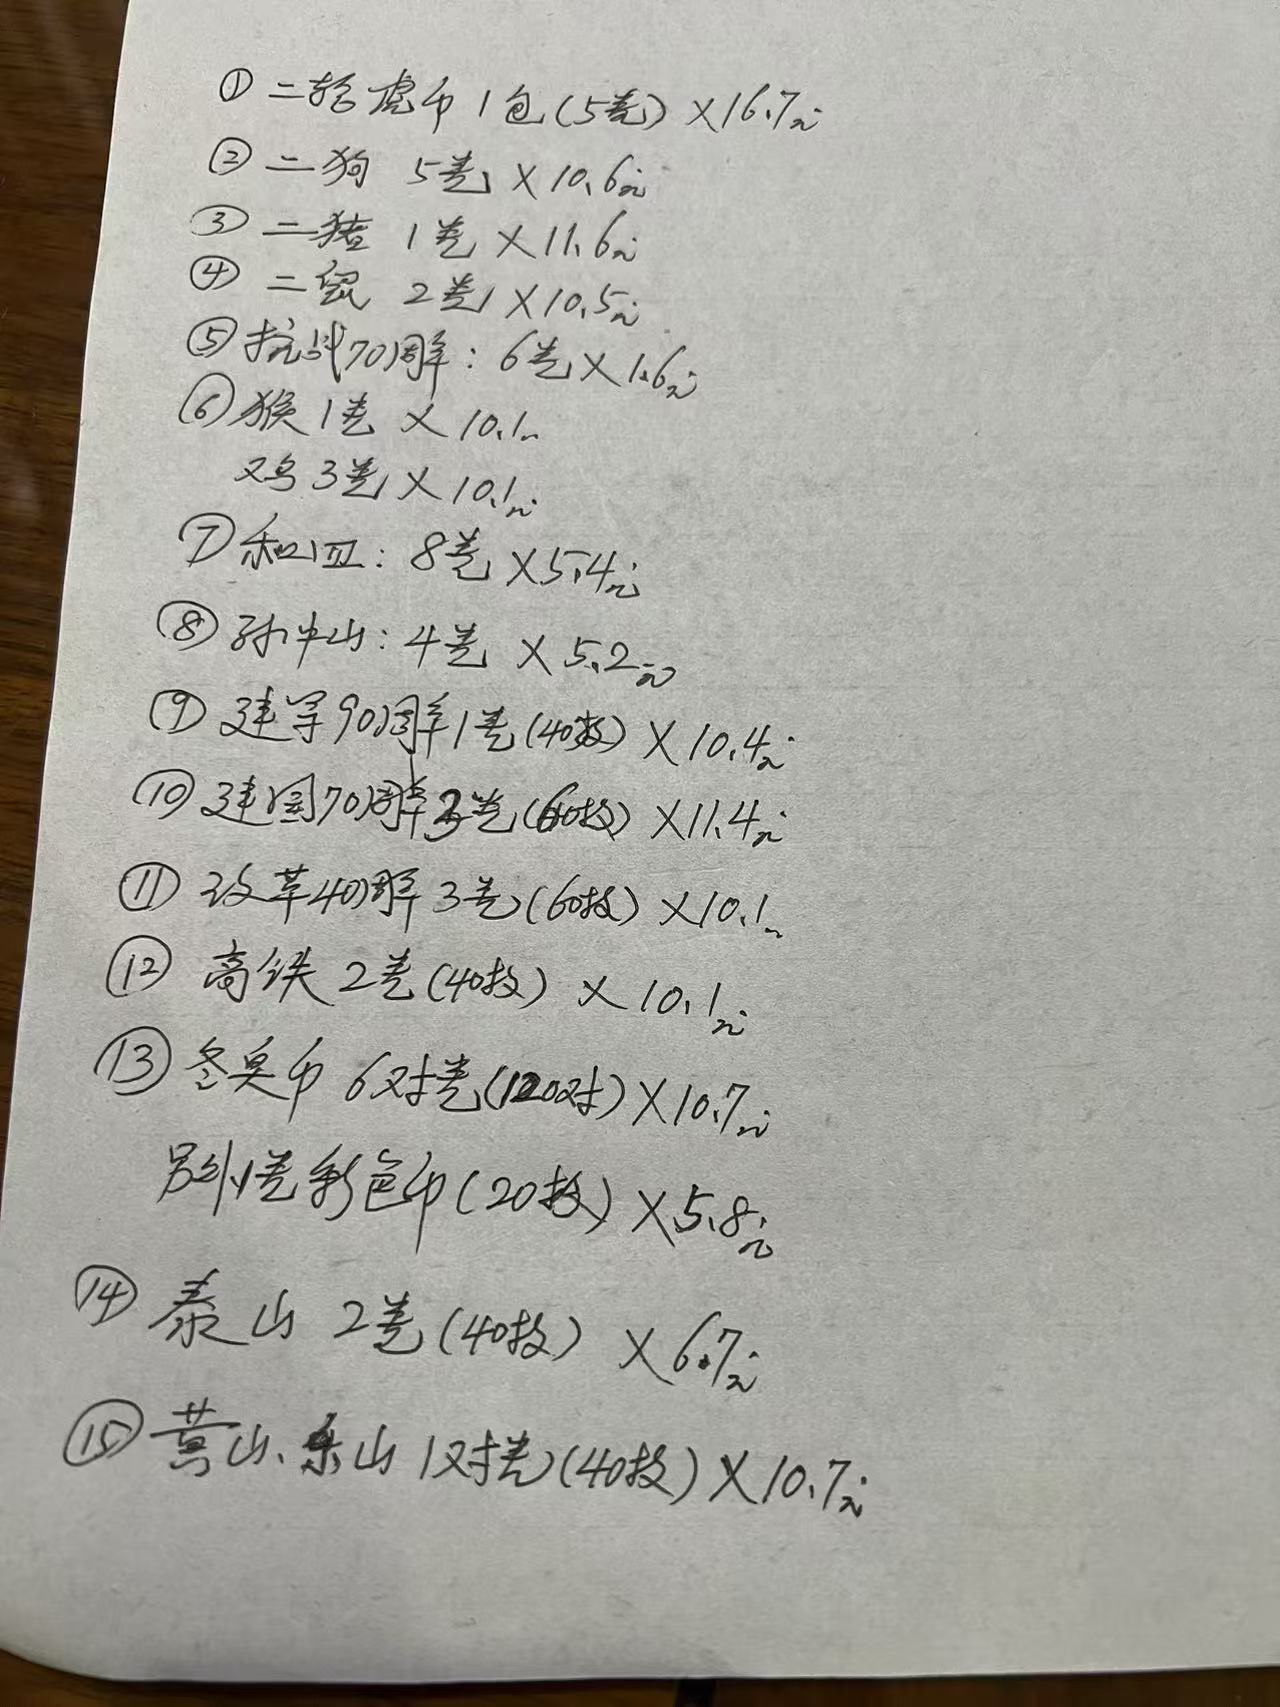 ① 二轮虎币 1包(5卷) ×16.7元
② 二狗 5卷 ×10.6元
③ 二猪 1卷 ×11.6元
④ 二鼠 2卷 ×10.5元
⑤ 抗战70周年: 6卷×1.6元
⑥ 猴 1卷 × 10.1元
鸡 3卷 × 10.1元
⑦ 和四: 8卷 ×5.4元
⑧ 孙中山: 4卷 ×5.2元
⑨ 建军90周年1卷(40枚) ×10.4元
⑩ 建国70周年3卷(60枚) ×11.4元
⑪ 改革40周年 3卷(60枚) ×10.1元
⑫ 高铁 2卷(40枚) × 10.1元
⑬ 冬奥币 6对卷(120对)×10.7元
另外1卷彩色币(20枚) ×5.8元
⑭ 泰山 2卷(40枚) ×6.7元
⑮ 黄山、乐山 1对卷(40枚) ×10.7元